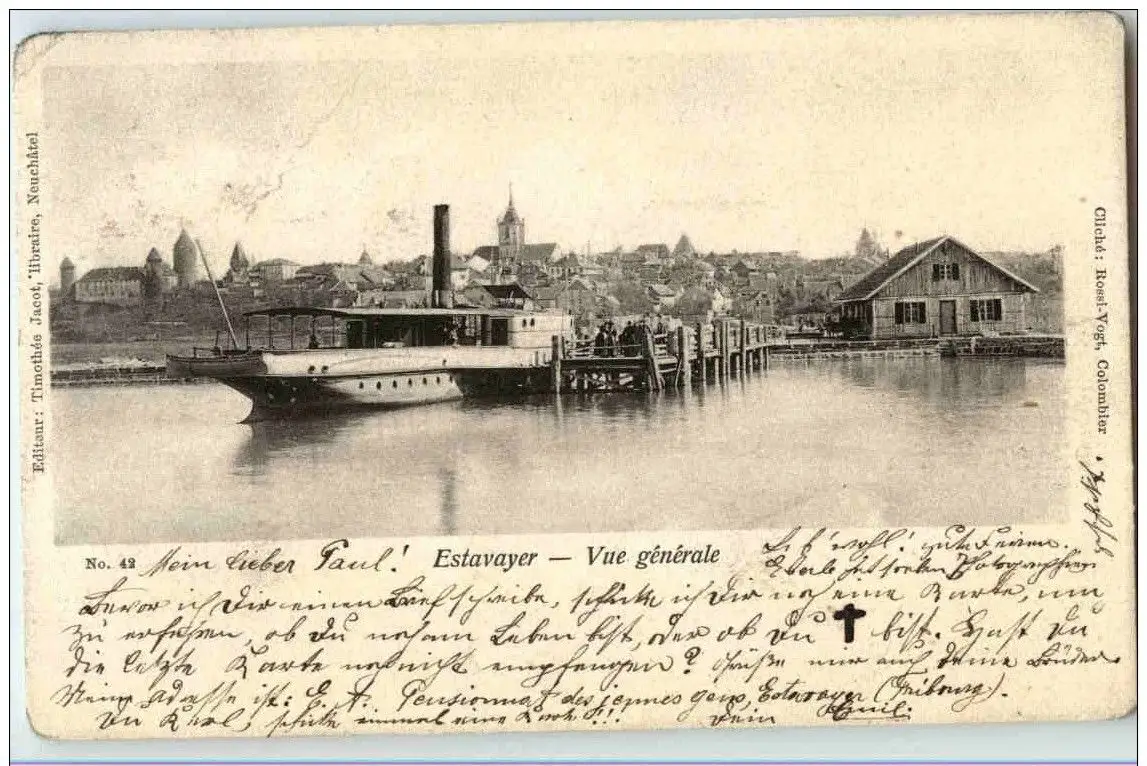 Editeur: Timothée Jacot, libraire, Neuchâtel
Cliché: Rossi-Vogt, Colombier
No. 42
Estavayer — Vue générale
Mein lieber Paul!
Leb' wohl! gute Ferien.
Photographieren
Bevor ich Dir einen Brief schreibe, schicke ich Dir noch eine Karte, um
zu erfahren, ob Du noch am Leben bist, oder ob Du ✝ bist. Hast Du
die letzte Karte noch nicht empfangen? Grüße mir auch Deine Brüder
Meine Adresse ist: E. A. Pensionnat des jeunes gens, Estavayer (Fribourg).
Du Karl, schicke einmal eine Karte!!! Dein Emil.